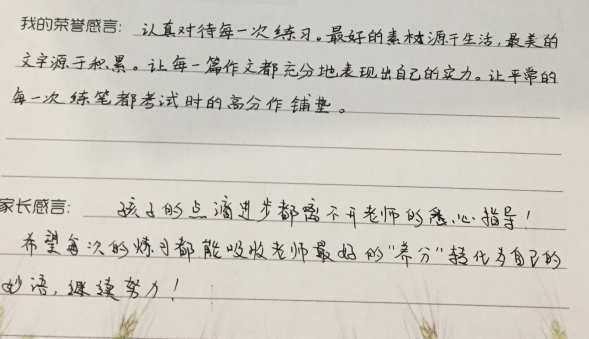 我的荣誉感言：认真对待每一次练习。最好的素材源于生活，最美的
文字源于积累。让每一篇作文都充分地表现出自己的实力。让平常的
每一次练笔都考试时的高分作铺垫。
家长感言：孩子的点滴进步都离不开老师的悉心指导！
希望每次的练习都能吸收老师最好的“养分”转化为自己的
妙语，继续努力！